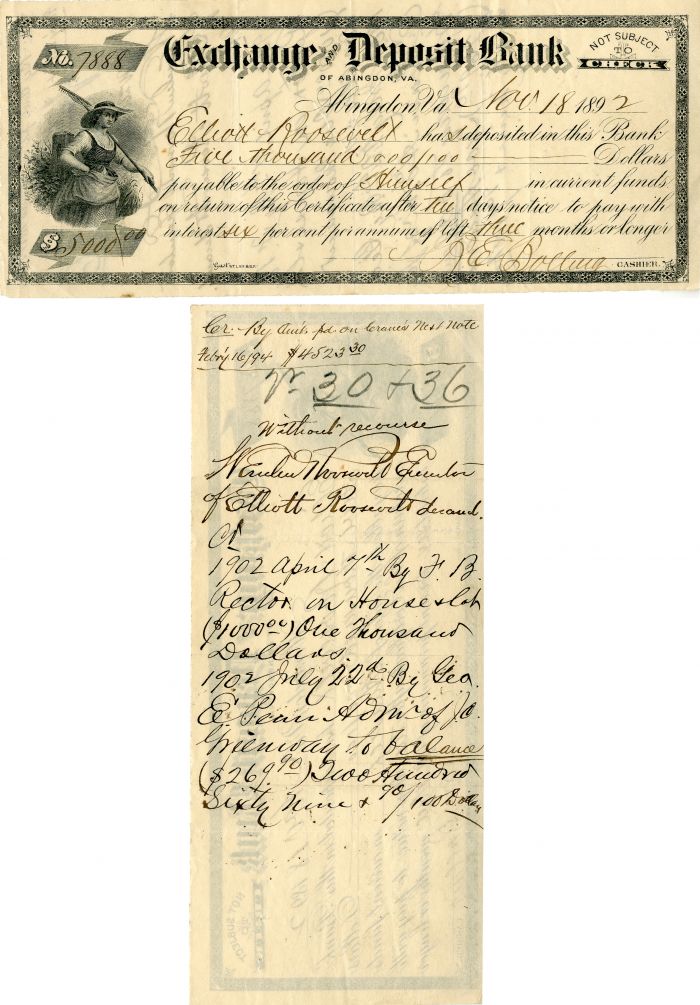 No. 7888
Exchange AND Deposit Bank
OF ABINGDON, VA.
NOT SUBJECT
TO
CHECK
Abingdon, Va. Nov 18 1892
Elliott Roosevelt has deposited in this Bank
Five thousand 000/100 Dollars
payable to the order of Himself in current funds
on return of this Certificate after ten days notice to pay with
interest six per cent per annum if left three months or longer
$5000.00
R E Bolling CASHIER.
Cr. By Amt. pd. on Crane's Nest Note
Feb'y 16/94 $4523 30
30 & 36
Without recourse
Roosevelt Executor
of Elliott Roosevelt decead.
Cr
1902 April 7th By F. B.
Rector on House & lot
($1000 00) One Thousand
Dollars.
1902 July 22d By Geo.
E. Penn Admr of J. C.
Greenway to balance
($269 90) Two Hundred
Sixty Nine & 90/100 Dollars
NOT SUBJECT
TO
CHECK